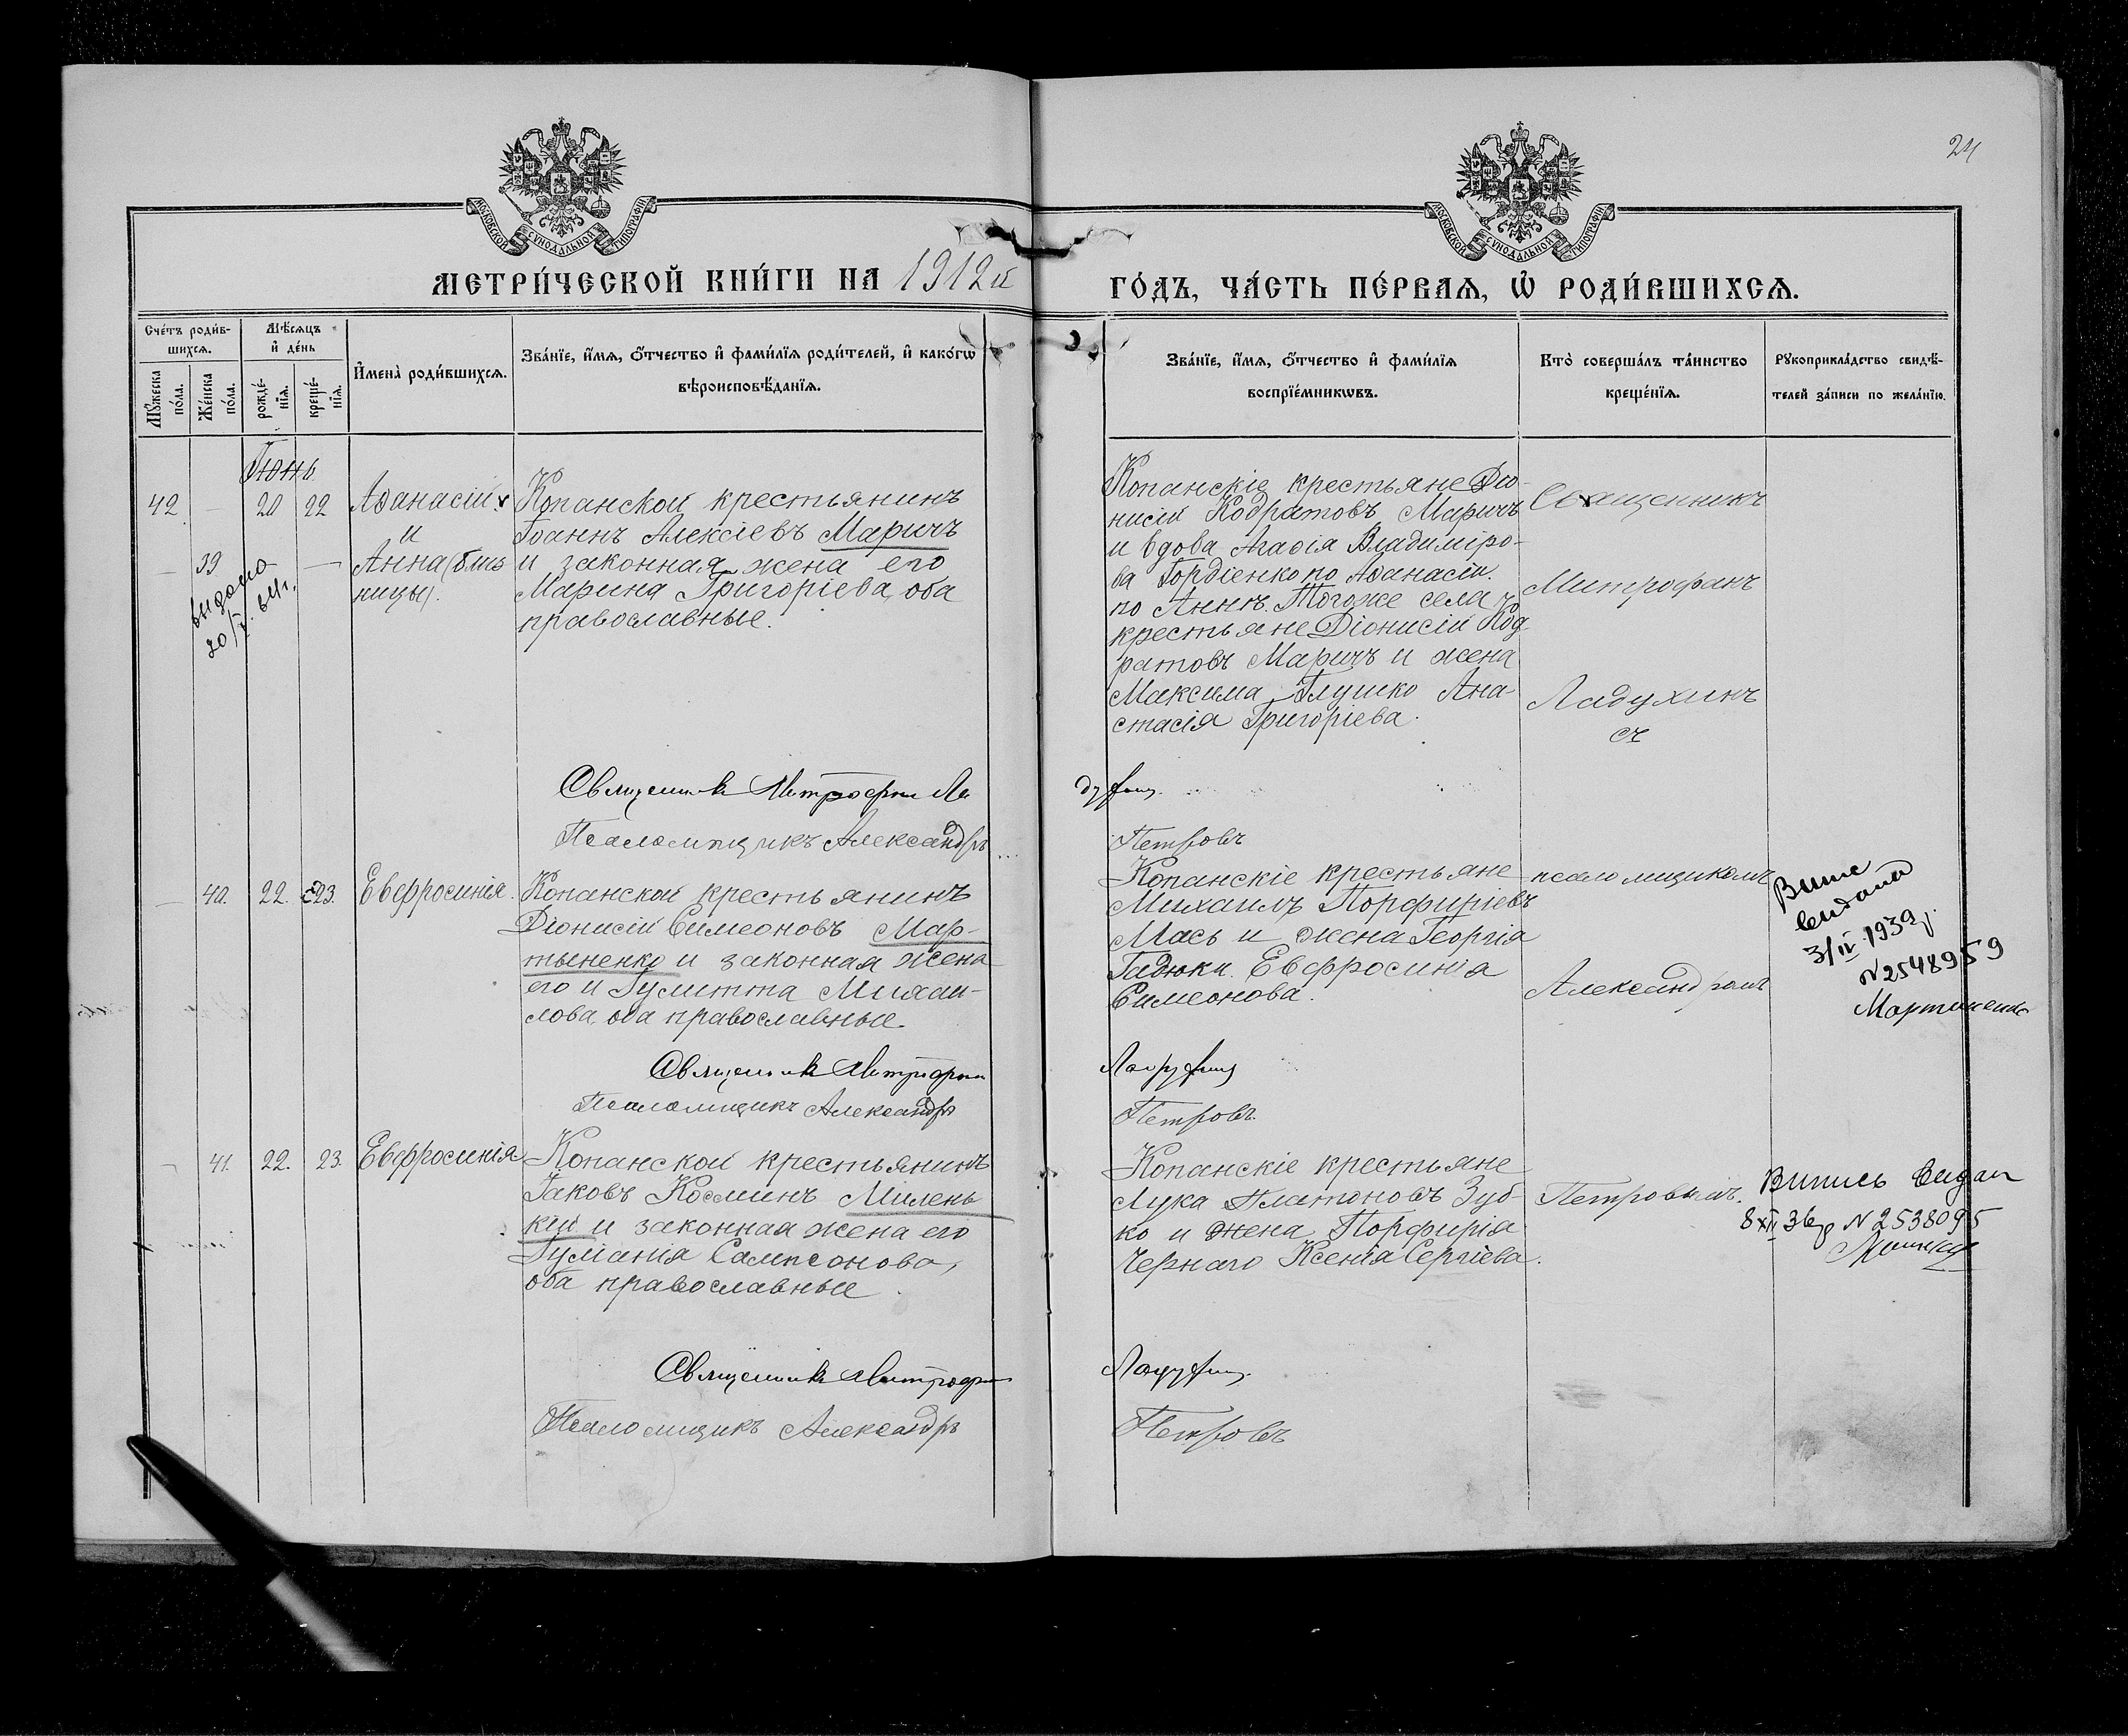 24
МОСКОВСКОЙ СѴНОДАЛЬНОЙ ТИПОГРАФІИ
МОСКОВСКОЙ СѴНОДАЛЬНОЙ ТИПОГРАФІИ
МЕТРИ́ЧЕСКОЙ КНИ́ГИ НА 1912й
ГО́ДЪ, ЧА́СТЬ ПЕ́РВАѦ, Ѡ҆ РОДИ́ВШИХСѦ.
Сче́тъ роди́в-
шихсѧ.
Мꙋ́жеска по́ла.
Же́нска по́ла.
Мѣ́сѧцъ
и҆ де́нь
рожде́-
нїѧ.
креще́-
нїѧ.
И҆мена̀ роди́вшихсѧ.
Зва́нїе, и҆́мѧ, ѻ҆́тчество и҆ фами́лїѧ роди́телей, и҆ како́гѡ
вѣроисповѣ́данїѧ.
Зва́нїе, и҆́мѧ, ѻ҆́тчество и҆ фами́лїѧ
воспрїе́мникѡвъ.
Кто̀ соверша́лъ та́инство
креще́нїѧ.
Рꙋкоприкла́дство свидѣ́-
телей за́писи по жела́нїю.
Іюнь
42. – 20 22
– 39 –
видано
Аѳанасій
и
Анна (близ
ницы).
Копанской крестьянинъ
Іоаннъ Алексіевъ Маричъ
и законная жена его
Марина Григоріева, оба
православные.
Копанскіе крестьяне Діо-
нисій Кодратовъ Маричъ
и вдова Агафія Владиміро-
ва Гордіенко по Аѳанасіи.
по Аннѣ. Тогоже села
крестьяне Діонисій Код
ратовъ Маричъ и жена
Максима Глушко Ана-
стасія Григоріева.
Священникъ
Митрофанъ
Ладухинъ
съ
Священникъ Митрофанъ Ла
духинъ.
Псаломщикъ Александръ
Петровъ
– 40. 22. 23.
Евфросинія.
Копанской крестьянинъ
Діонисій Симеоновъ Мар-
тыненко и законная жена
его Иулитта Михаи-
лова, оба православные.
Копанскіе крестьяне
Михаилъ Порфиріевъ
Мась и жена Георгія
Гадюки Евфросинія
Симеонова.
псаломщикомъ
Александромъ
видана
3/IV 1939 р.
N 2548959
Мартиненко
Священникъ Митрофанъ
Ладухинъ
Псаломщикъ Александръ
Петровъ.
– 41. 22. 23.
Евфросинія
Копанской крестьянинъ
Іаковъ Косминъ Милень
кій и законная жена его
Іуліанія Сампсонова,
оба православные.
Копанскіе крестьяне
Лука Платоновъ Зуб-
ко и жена Порфирія
Чернаго Ксенія Сергіева.
Петровымъ.
Випись видан
8 XII 36 р N 2538095
Священникъ Митрофанъ
Ладухинъ.
Псаломщикъ Александръ
Петровъ